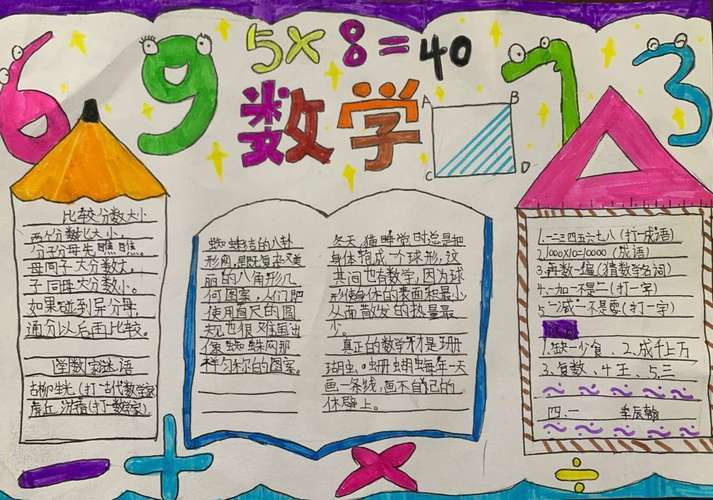 6
9
5×8=40
7
3
数学
A
B
C
D
比较分数大小
两个分数比大小，
分子分母先瞧瞧。
母同子大分数大，
子同母大分数小。
如果碰到异分母，
通分以后再比较。
学数字谜语
(打一古代数学家)
(打一数学家)
蜘蛛结的八卦
形网,是既复杂又美
丽的八角形几
何图案,人们即
使用直尺的圆
规也很难画出
像蜘蛛网那
样匀称的图案。
冬天,猫睡觉时总是把
身体抱成一个球形,这
其间也有数学,因为球
形使身体的表面积最小
从而散发的热量最
少。
真正的数学天才是珊
瑚虫。珊瑚虫每年一天
画一条线,画在自己的
体壁上。
1.一二三四五六七八(打一成语)
2.1000×10=10000(成语)
3.再数一遍(猜数学名词)
4.一加一不是二(打一字)
5.一减一不是零(打一字)
1.缺一少食、2.成千上万
3.复数、4.王、5.三
四.一
李辰翰